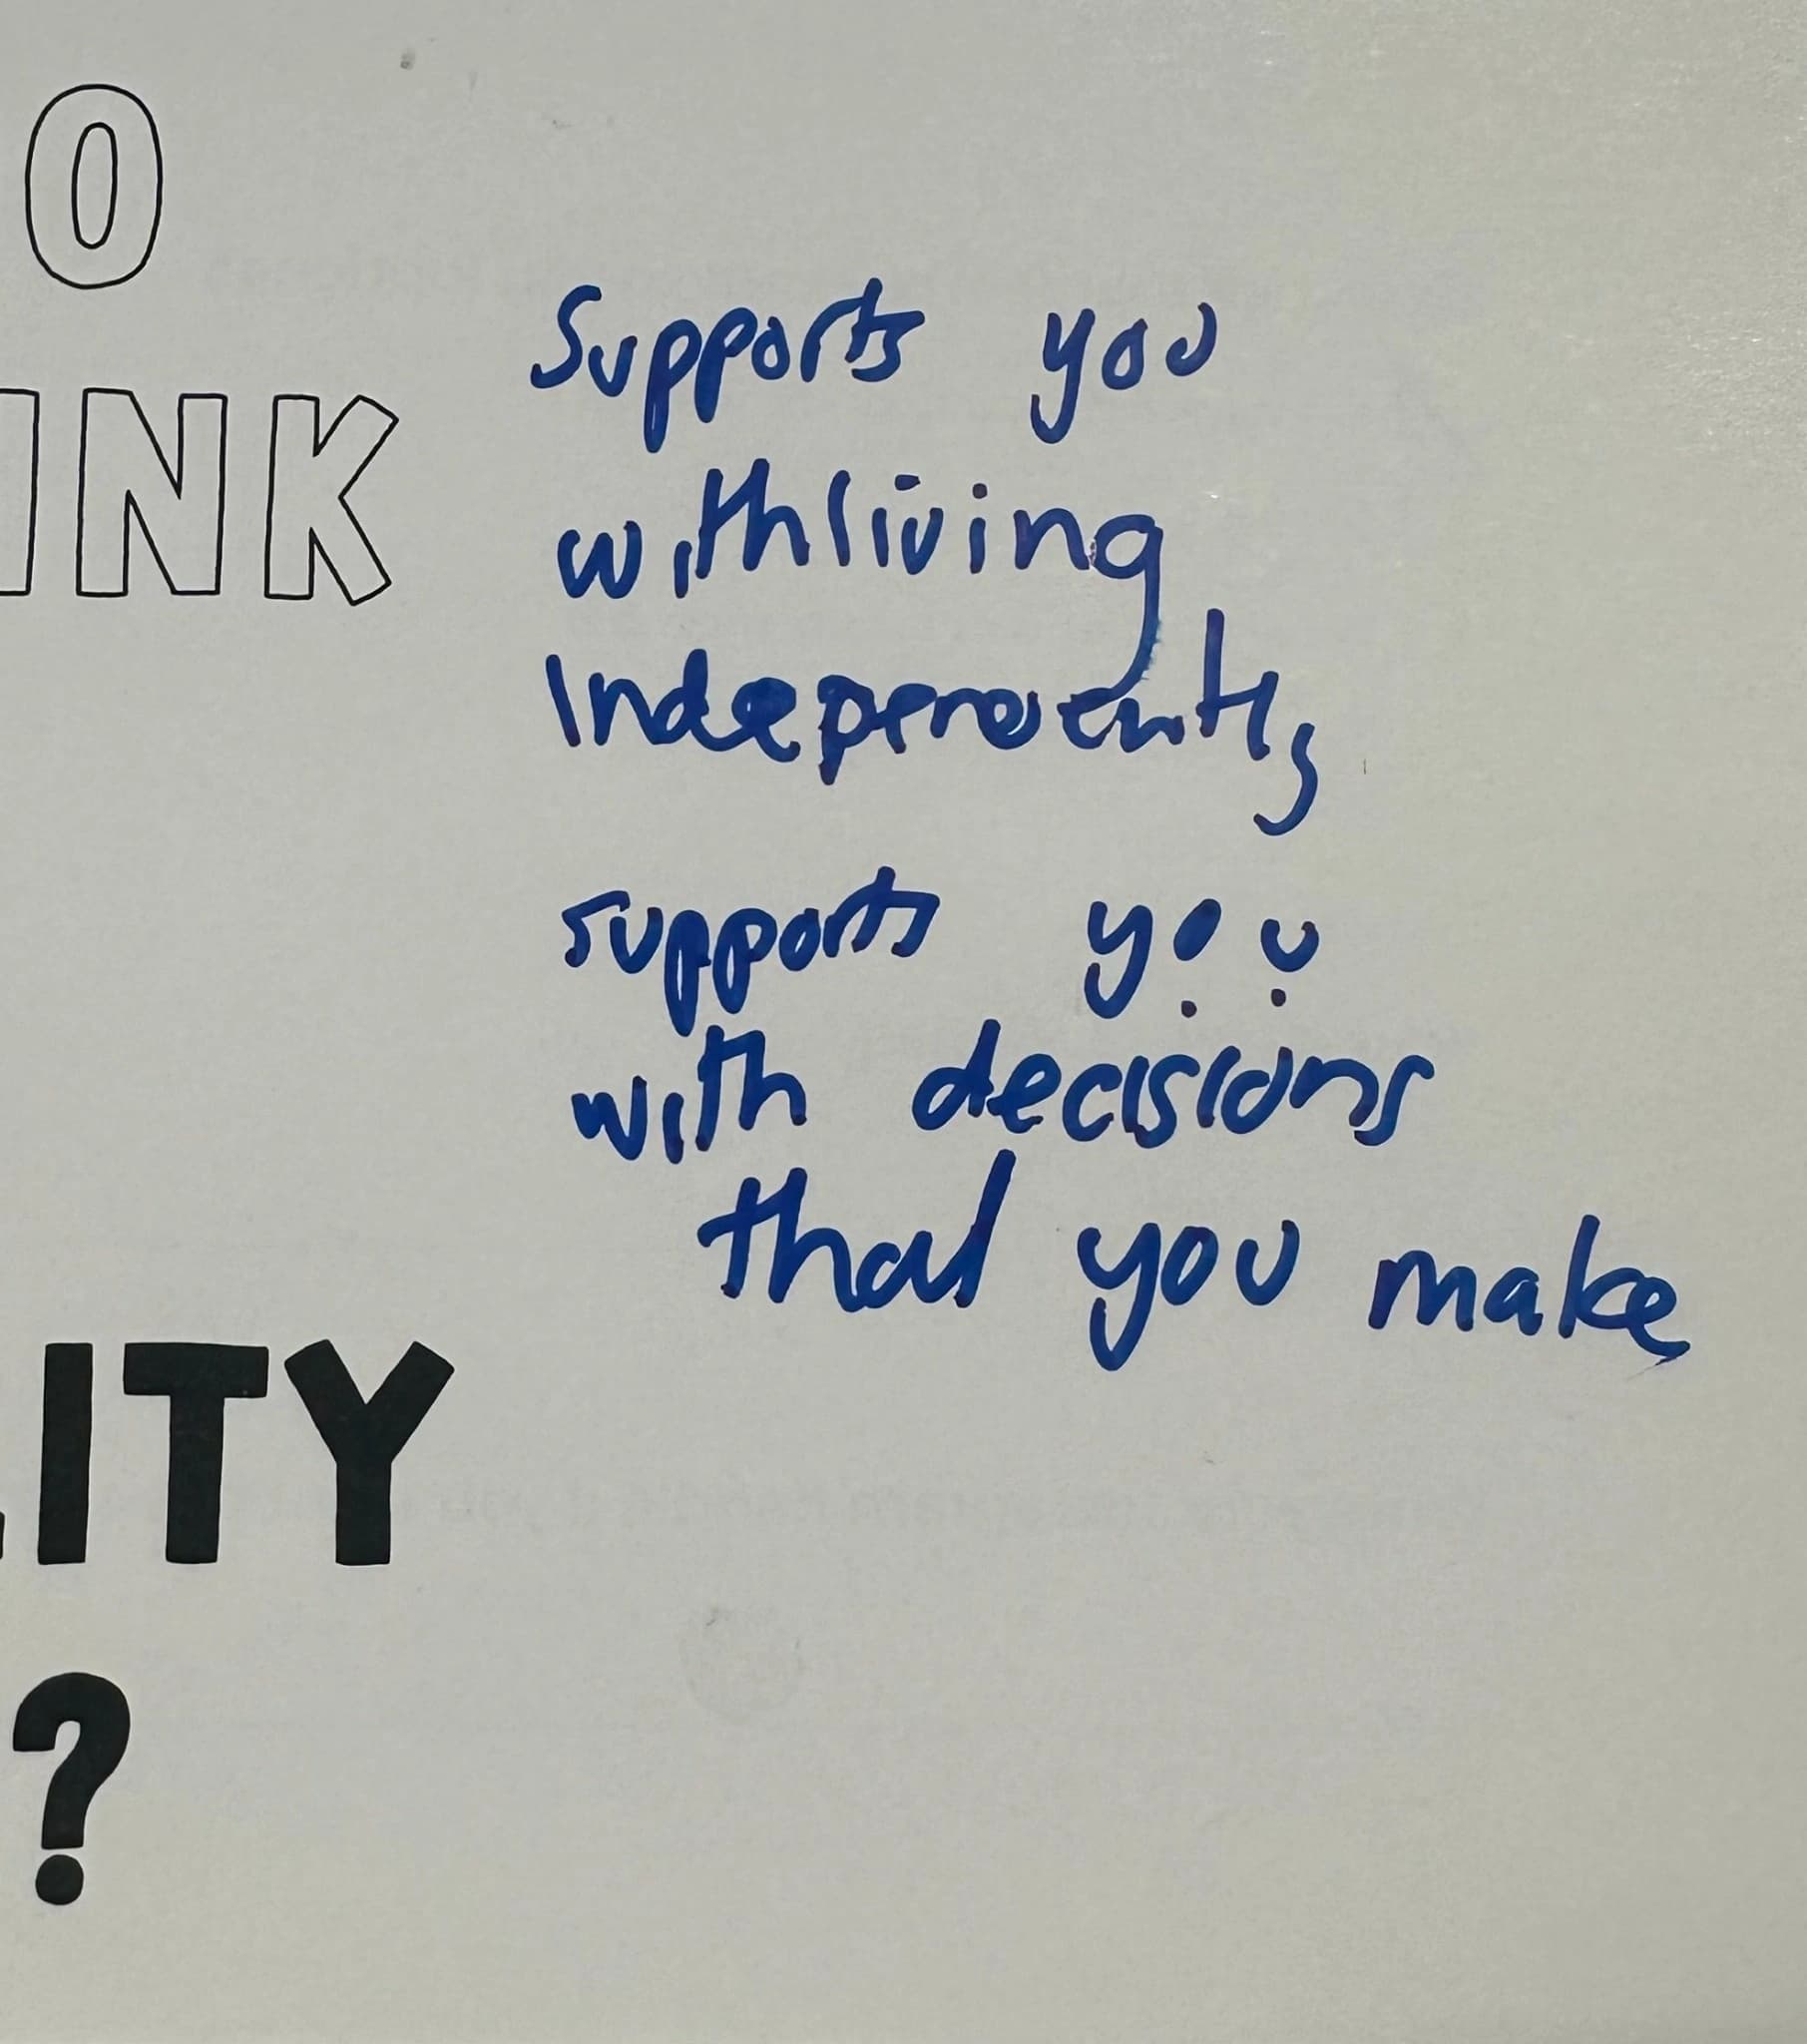 O
INK
Supports you
with living
Independently
supports you
with decisions
that you make
LITY
?